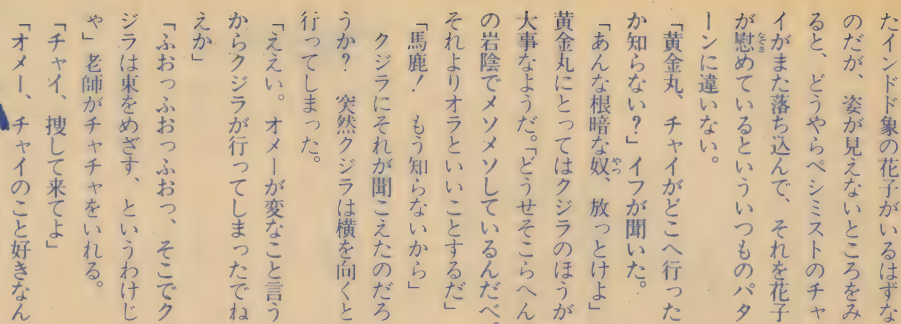 たインド象の花子がいるはずな
のだが、姿が見えないところをみ
ると、どうやらペシミストのチャ
イがまた落ち込んで、それを花子
が慰めているといういつものパタ
ーンに違いない。
「黄金丸、チャイがどこへ行った
か知らない?」イフが聞いた。
「あんな根暗な奴、放っとけよ」
黄金丸にとってはクジラのほうが
大事なようだ。「どうせそこらへん
の岩陰でメソメソしているんだべ。
それよりオラといいことするだ」
「馬鹿! もう知らないから」
クジラにそれが聞こえたのだろ
うか? 突然クジラは横を向くと
行ってしまった。
「ええい。オメーが変なこと言う
からクジラが行ってしまったでね
えか」
「ふおっふおっふおっ、そこでク
ジラは東をめざす、というわけじ
ゃ」老師がチャチャをいれる。
「チャイ、捜して来てよ」
「オメー、チャイのこと好きなん